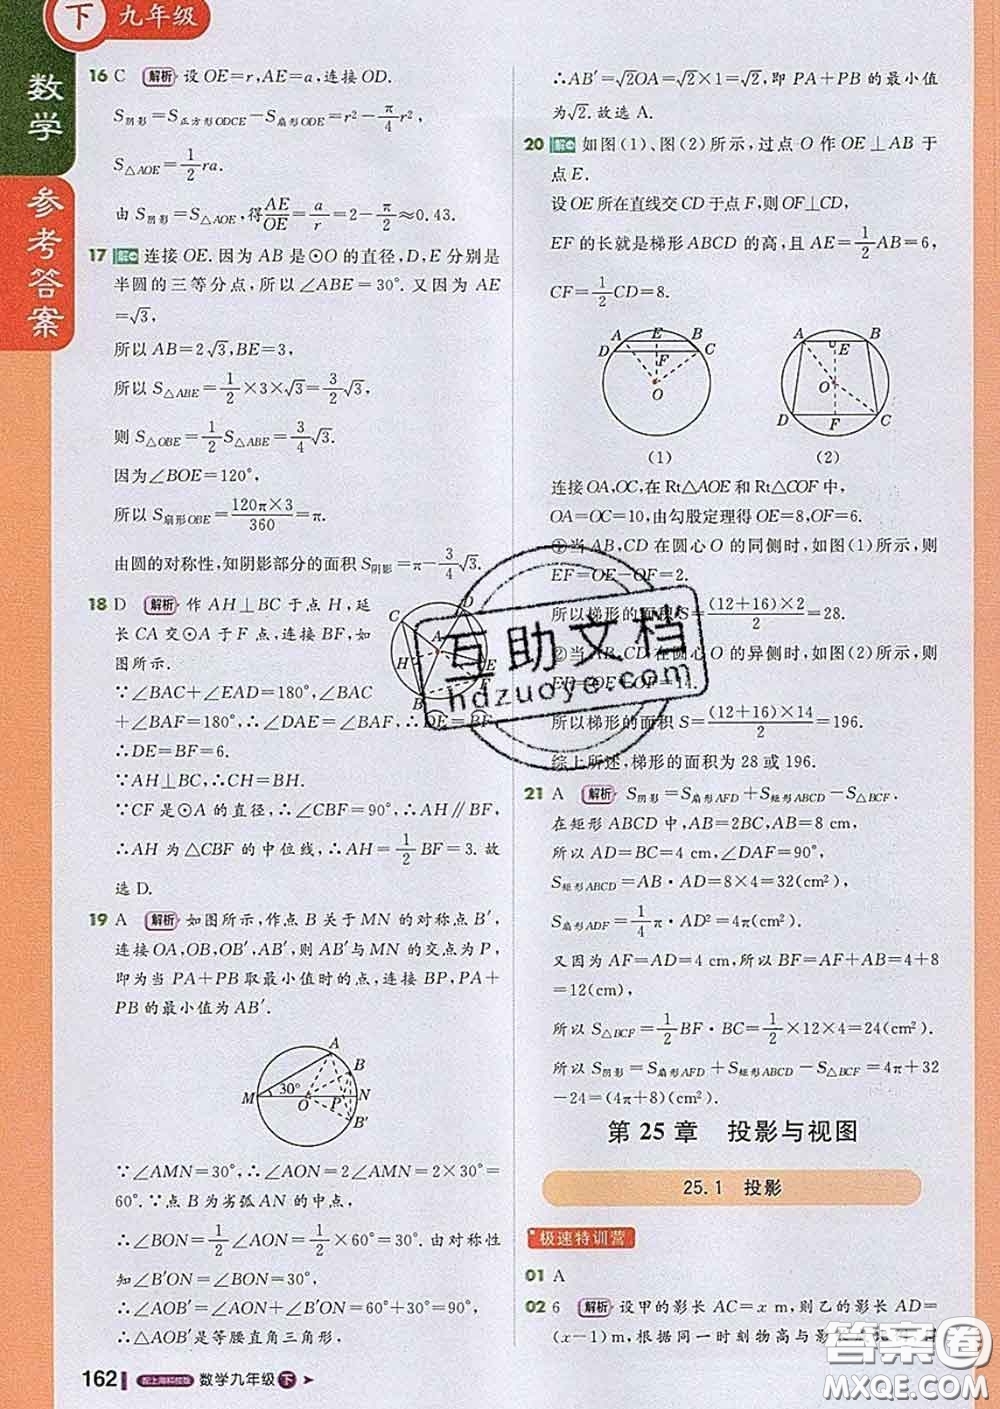 下 九年级
数学
参考答案
16 C 解析 设 OE=r,AE=a,连接 OD.
S阴影=S正方形ODCE-S扇形ODE=r²-π/4 r²,
S△AOE=1/2 ra.
由 S阴影=S△AOE,得AE/OE=a/r=2-π/2≈0.43.
17 解 连接 OE. 因为 AB 是⊙O 的直径,D,E 分别是
半圆的三等分点,所以∠ABE=30°. 又因为 AE
=√3,
所以 AB=2√3,BE=3,
所以 S△ABE=1/2×3×√3=3/2√3.
则 S△OBE=1/2S△ABE=3/4√3.
因为∠BOE=120°,
所以 S扇形OBE=120π×3/360=π.
由圆的对称性,知阴影部分的面积 S阴影=π-3/4√3.
18 D 解析 作 AH⊥BC 于点 H,延
长 CA 交⊙A 于 F 点,连接 BF,如
图所示.
∵∠BAC+∠EAD=180°,∠BAC
+∠BAF=180°,∴∠DAE=∠BAF,∴DE=BF,
∴DE=BF=6.
∵AH⊥BC,∴CH=BH.
∵CF 是⊙A 的直径,∴∠CBF=90°,∴AH∥BF,
∴AH 为△CBF 的中位线,∴AH=1/2BF=3. 故
选 D.
C D A H E B F
19 A 解析 如图所示,作点 B 关于 MN 的对称点 B′,
连接 OA,OB,OB′,AB′,则 AB′与 MN 的交点为 P,
即为当 PA+PB 取最小值时的点,连接 BP,PA+
PB 的最小值为 AB′.
A B M 30° O P N B′
∵∠AMN=30°,∴∠AON=2∠AMN=2×30°
=60°. ∵点 B 为劣弧 AN 的中点,
∴∠BON=1/2∠AON=1/2×60°=30°. 由对称性
知∠B′ON=∠BON=30°,
∴∠AOB′=∠AON+∠B′ON=60°+30°=90°,
∴△AOB′是等腰直角三角形,
162 配上海科技版 数学九年级 下
∴AB′=√2OA=√2×1=√2,即 PA+PB 的最小值
为√2. 故选 A.
20 解 如图(1)、图(2)所示,过点 O 作 OE⊥AB 于
点 E.
设 OE 所在直线交 CD 于点 F,则 OF⊥CD,
EF 的长就是梯形 ABCD 的高,且 AE=1/2AB=6,
CF=1/2CD=8.
A E B D F C O
A B E O D F C
(1) (2)
连接 OA,OC,在 Rt△AOE 和 Rt△COF 中,
OA=OC=10,由勾股定理得 OE=8,OF=6.
①当 AB,CD 在圆心 O 的同侧时,如图(1)所示,则
EF=OE-OF=2.
所以梯形的面积 S=(12+16)×2/2=28.
②当 AB,CD 在圆心 O 的异侧时,如图(2)所示,则
EF=OE+OF=14.
所以梯形的面积 S=(12+16)×14/2=196.
综上所述,梯形的面积为 28 或 196.
21 A 解析 S阴影=S扇形AFD+S矩形ABCD-S△BCF.
在矩形 ABCD 中,AB=2BC,AB=8 cm,
所以 AD=BC=4 cm,∠DAF=90°,
S矩形ABCD=AB·AD=8×4=32(cm²),
S扇形ADF=1/4π·AD²=4π(cm²).
又因为 AF=AD=4 cm,所以 BF=AF+AB=4+8
=12(cm),
所以 S△BCF=1/2BF·BC=1/2×12×4=24(cm²).
所以 S阴影=S扇形AFD+S矩形ABCD-S△BCF=4π+32
-24=(4π+8)(cm²).
第 25 章 投影与视图
25.1 投影
极速特训营
01 A
02 6 解析 设甲的影长 AC=x m,则乙的影长 AD=
(x-1)m,根据同一时刻物高与影
互助文档
hdzuoye.com
答案圈
MXQE.COM